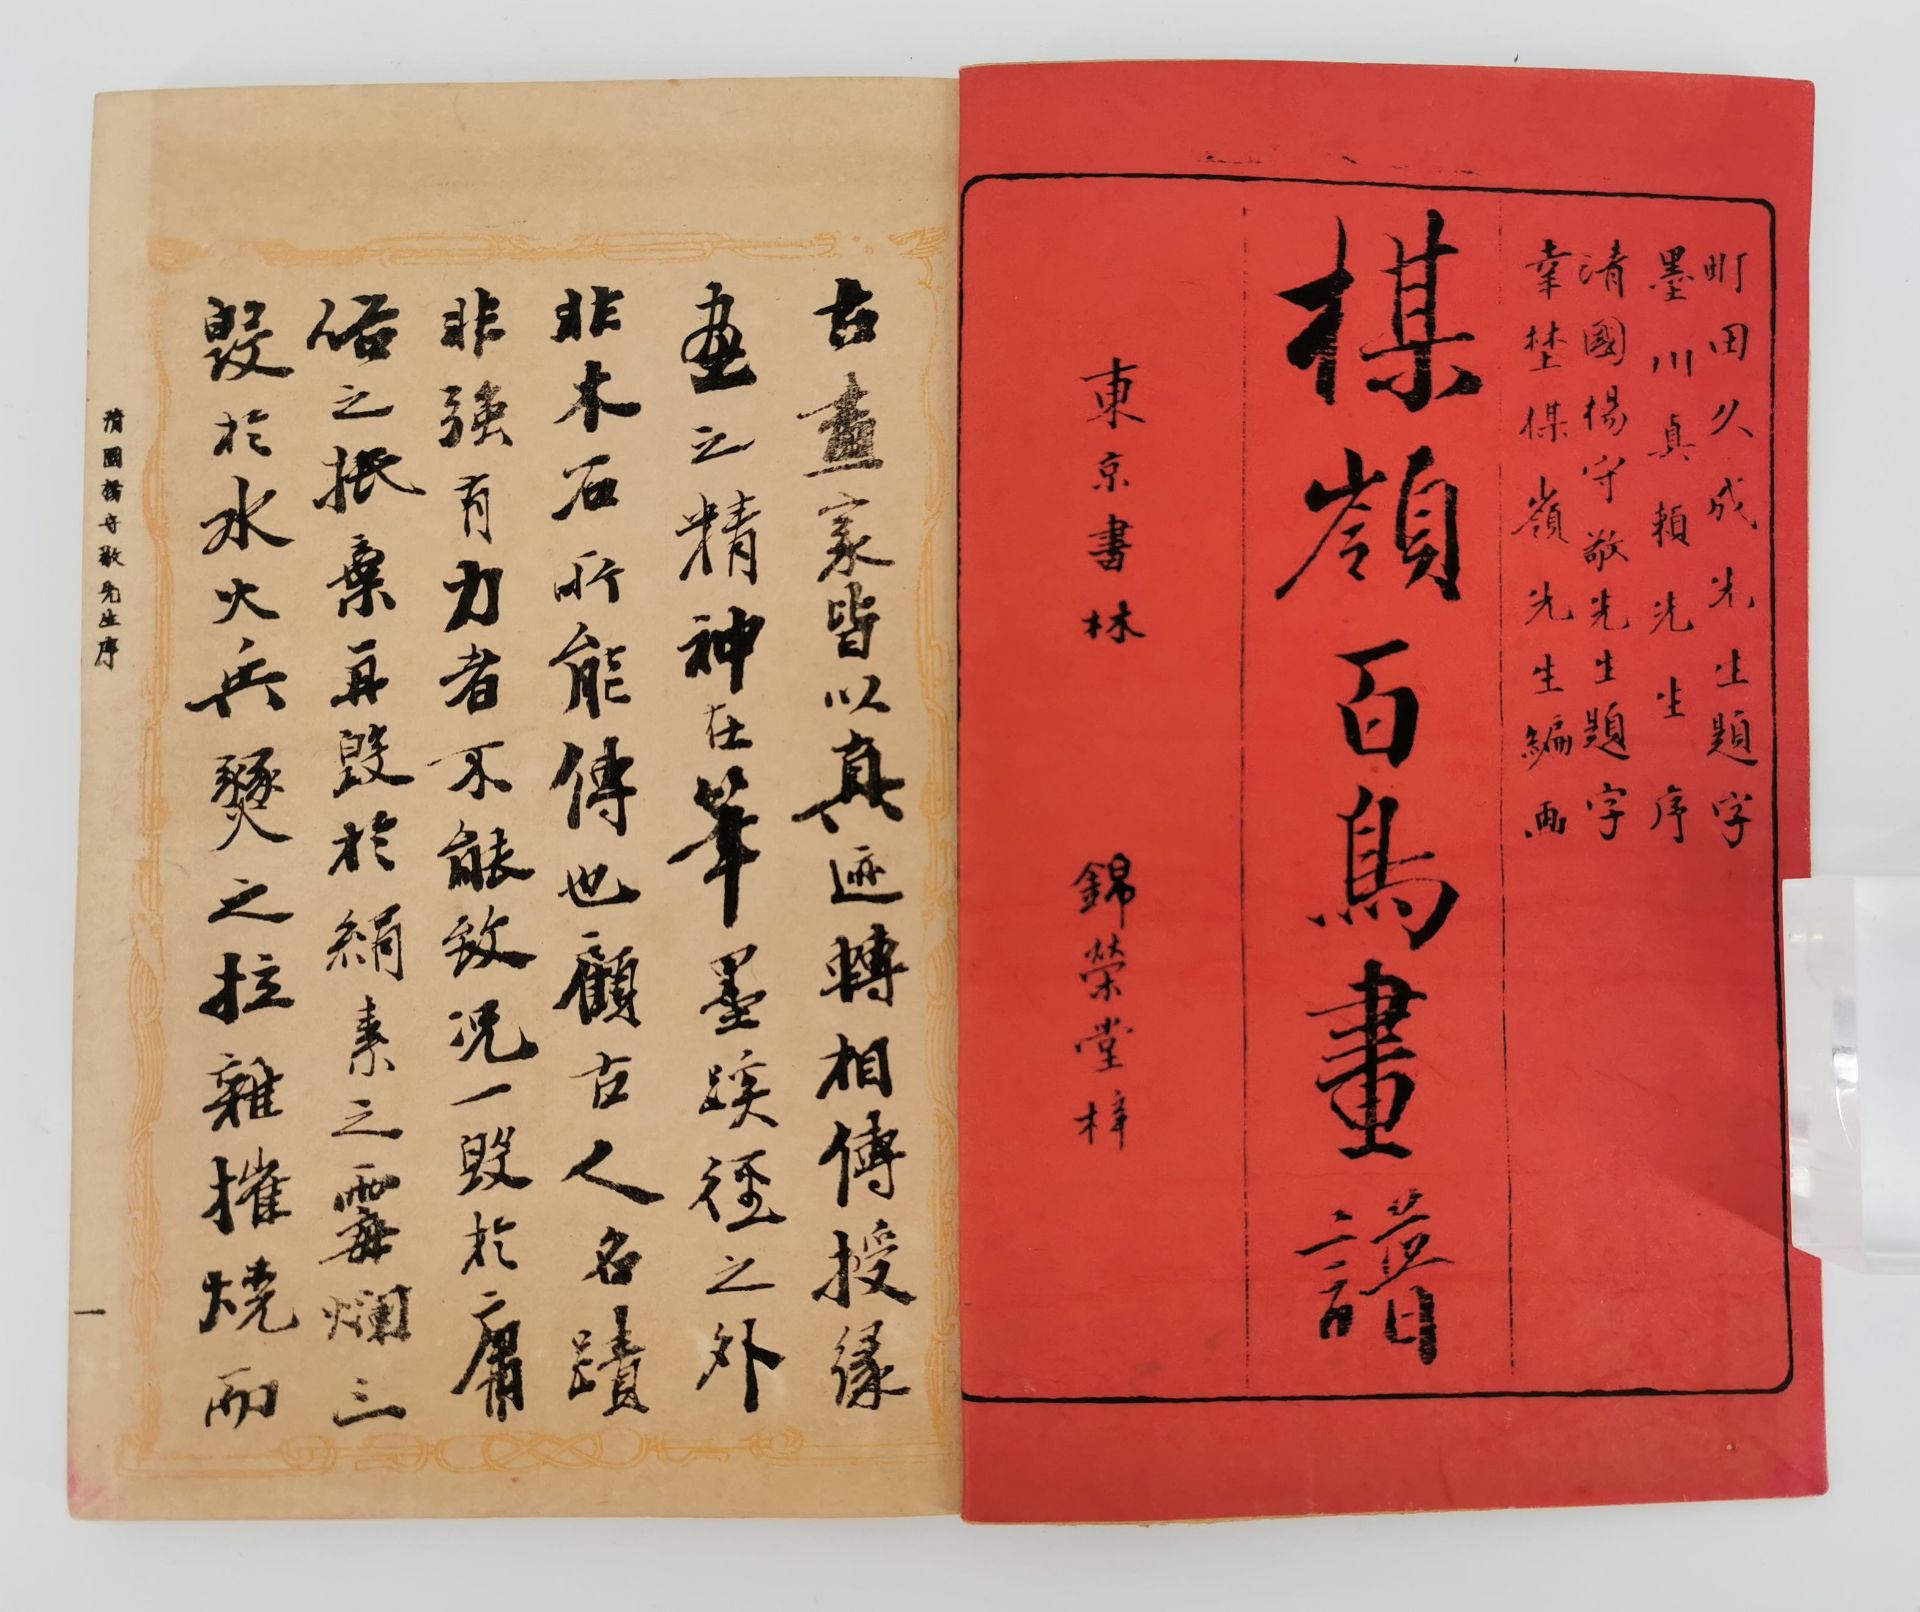 町田久成先生題字
墨川真頼先生序
清國楊守敬先生題字
幸埜楳嶺先生編画
楳嶺百鳥畫譜
東京書林 錦榮堂梓
古畫家皆以真迹轉相傳授緣
畫之精神在筆墨蹊徑之外
非木石所能傳也顧古人名蹟
非強有力者不能致况一毀於庸
俗之抵棄再毀於絹素之霉爛三
毀於水火兵燹之拉雜摧燒而
清國楊守敬先生序
一